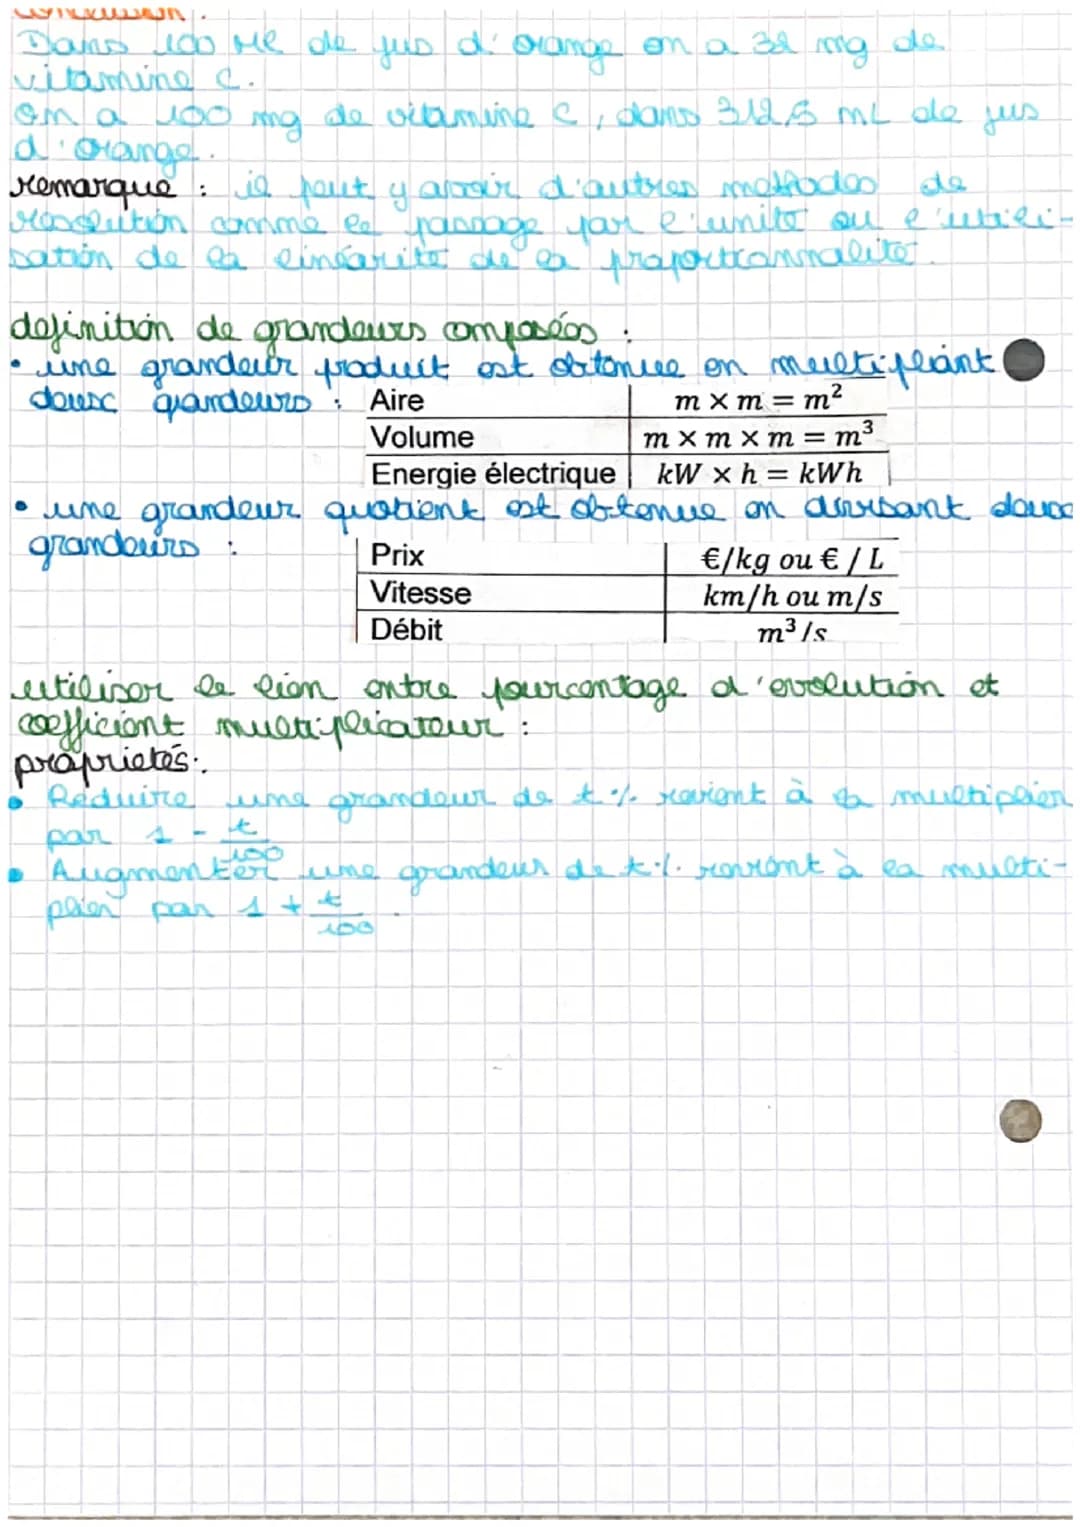 conclusion :
Dans 100 ml de jus d'orange on a 32 mg de
vitamine C.
on a 100 mg de vitamine C, dans 312,5 mL de jus
d'orange.
remarque : il peut y avoir d'autres methodes de
resolution comme le passage par l'unité ou l'utili-
sation de la linéarité de la proportionnalité.
definition de grandeurs composées :
• une grandeur produit est obtenue en multipliant
deux grandeurs :
Aire m × m = m²
Volume m × m × m = m³
Energie électrique kW × h = kWh
• une grandeur quotient est obtenue en divisant deux
grandeurs :
Prix €/kg ou € / L
Vitesse km/h ou m/s
Débit m³/s
utiliser le lien entre pourcentage d'evolution et
coefficient multiplicateur :
proprietés :
• Reduire une grandeur de t % revient à la multiplier
par 1 - t/100
• Augmenter une grandeur de t % revient à la multi-
plier par 1 + t/100.